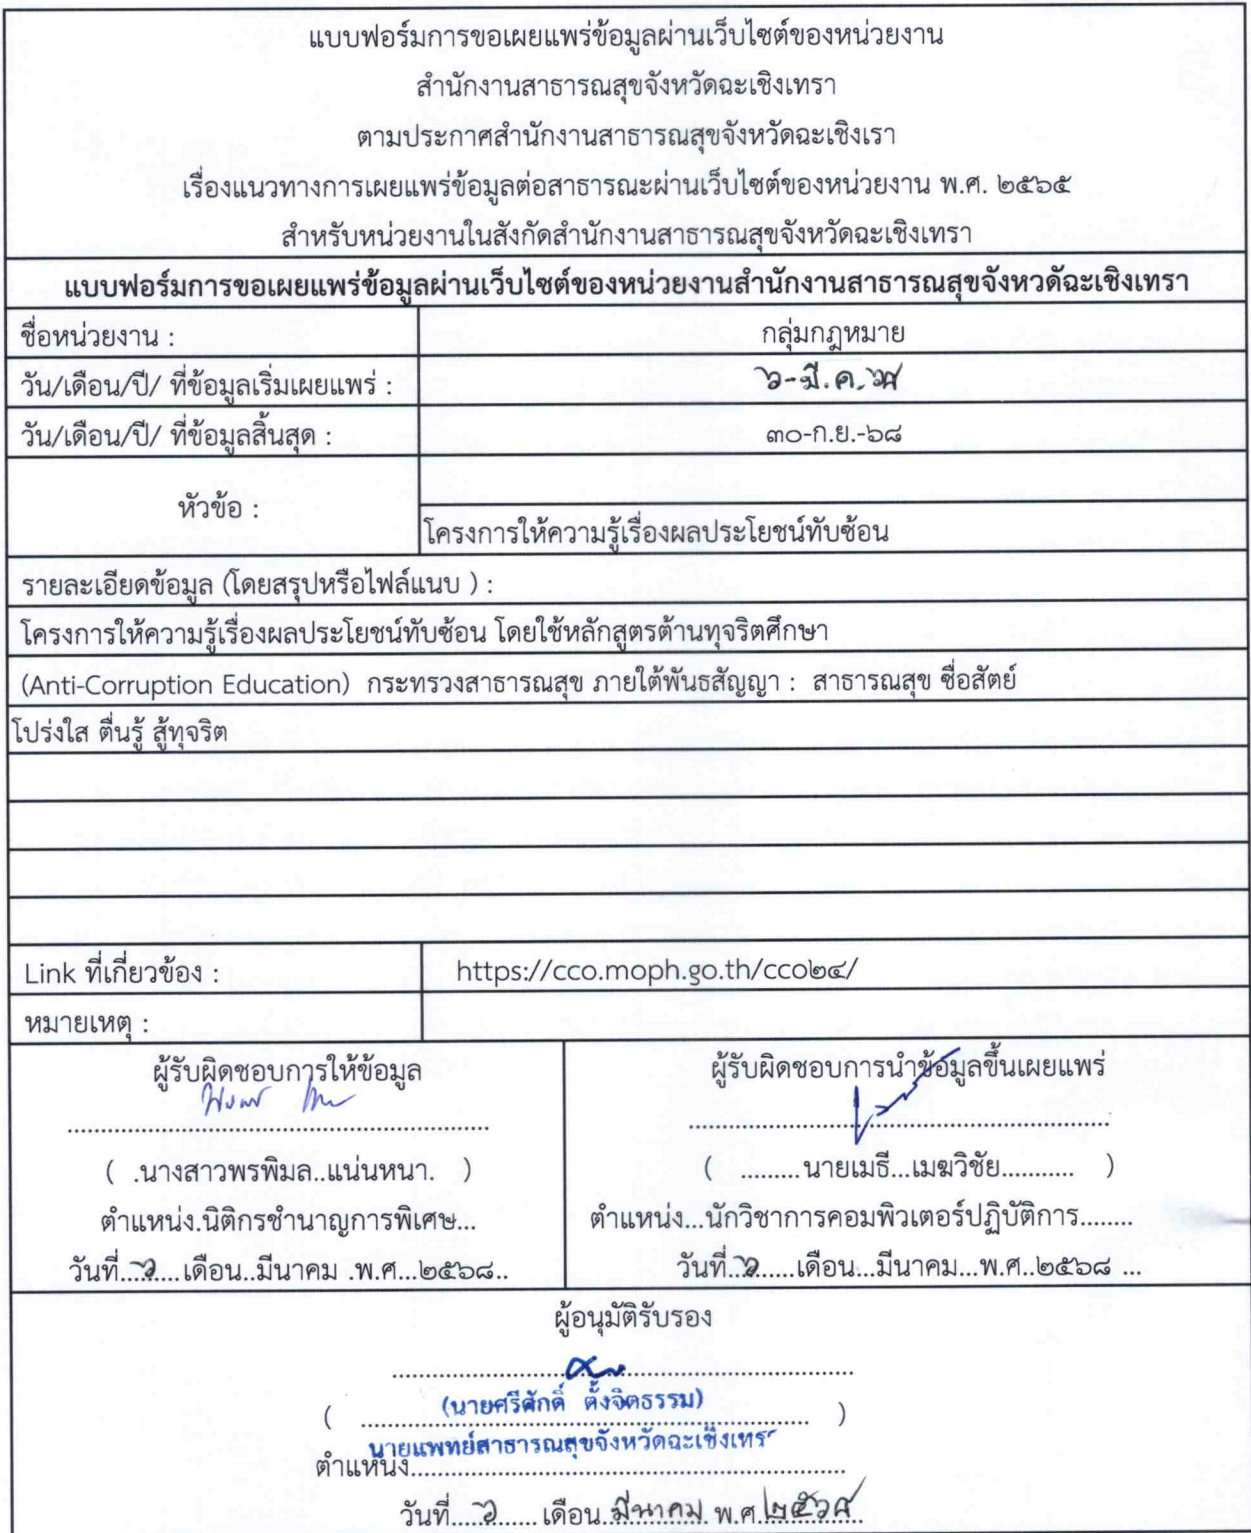 แบบฟอร์มการขอเผยแพร่ข้อมูลผ่านเว็บไซต์ของหน่วยงาน
สำนักงานสาธารณสุขจังหวัดฉะเชิงเทรา
ตามประกาศสำนักงานสาธารณสุขจังหวัดฉะเชิงเรา
เรื่องแนวทางการเผยแพร่ข้อมูลต่อสาธารณะผ่านเว็บไซต์ของหน่วยงาน พ.ศ. ๒๕๖๕
สำหรับหน่วยงานในสังกัดสำนักงานสาธารณสุขจังหวัดฉะเชิงเทรา
แบบฟอร์มการขอเผยแพร่ข้อมูลผ่านเว็บไซต์ของหน่วยงานสำนักงานสาธารณสุขจังหวดัฉะเชิงเทรา
ชื่อหน่วยงาน : กลุ่มกฎหมาย
วัน/เดือน/ปี/ ที่ข้อมูลเริ่มเผยแพร่ : ๖-มี.ค.๖๘
วัน/เดือน/ปี/ ที่ข้อมูลสิ้นสุด : ๓๐-ก.ย.-๖๘
หัวข้อ :
โครงการให้ความรู้เรื่องผลประโยชน์ทับซ้อน
รายละเอียดข้อมูล (โดยสรุปหรือไฟล์แนบ ) :
โครงการให้ความรู้เรื่องผลประโยชน์ทับซ้อน โดยใช้หลักสูตรต้านทุจริตศึกษา
(Anti-Corruption Education) กระทรวงสาธารณสุข ภายใต้พันธสัญญา : สาธารณสุข ซื่อสัตย์
โปร่งใส ตื่นรู้ สู้ทุจริต
Link ที่เกี่ยวข้อง : https://cco.moph.go.th/cco๒๔/
หมายเหตุ :
ผู้รับผิดชอบการให้ข้อมูล
( .นางสาวพรพิมล..แน่นหนา. )
ตำแหน่ง.นิติกรชำนาญการพิเศษ...
วันที่...๖.....เดือน..มีนาคม .พ.ศ...๒๕๖๘..
ผู้รับผิดชอบการนำข้อมูลขึ้นเผยแพร่
( .........นายเมธี...เมฆวิชัย........... )
ตำแหน่ง...นักวิชาการคอมพิวเตอร์ปฏิบัติการ........
วันที่...๖......เดือน...มีนาคม...พ.ศ..๒๕๖๘ ...
ผู้อนุมัติรับรอง
( (นายศรีศักดิ์ ตั้งจิตธรรม) )
ตำแหน่ง นายแพทย์สาธารณสุขจังหวัดฉะเชิงเทรา
วันที่.....๖...... เดือน.มีนาคม พ.ศ.๒๕๖๘